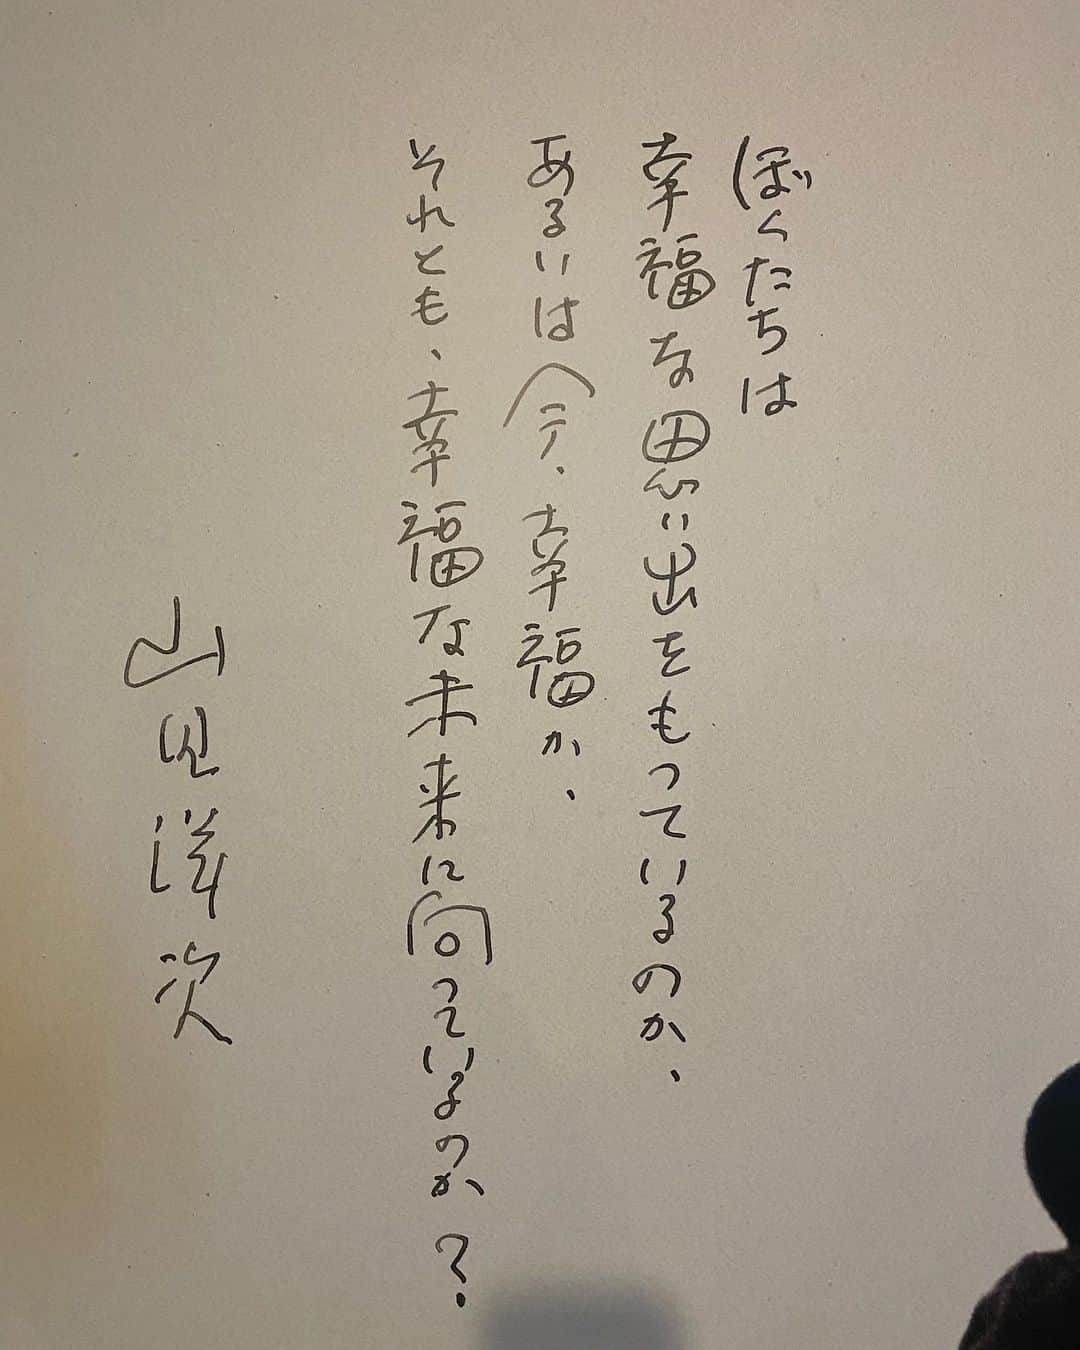 ぼくたちは
幸福な思い出をもっているのか、
あるいは今、幸福か、
それとも、幸福な未来に向っているのか?
山田洋次